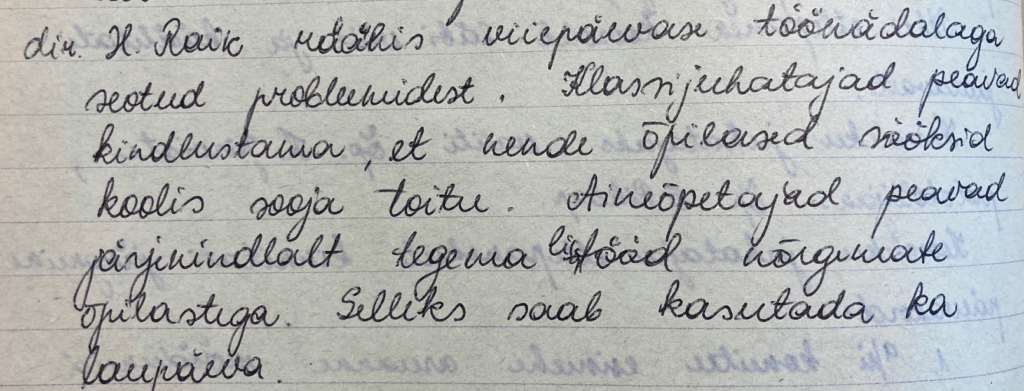 dir. H. Raik rääkis viiepäevase töönädalaga
seotud probleemidest. Klassijuhatajad peavad
kindlustama, et nende õpilased sööksid
koolis sooja toitu. Aineõpetajad peavad
järjekindlalt tegema lisatööd nõrgemate
õpilastega. Selleks saab kasutada ka
laupäeva.